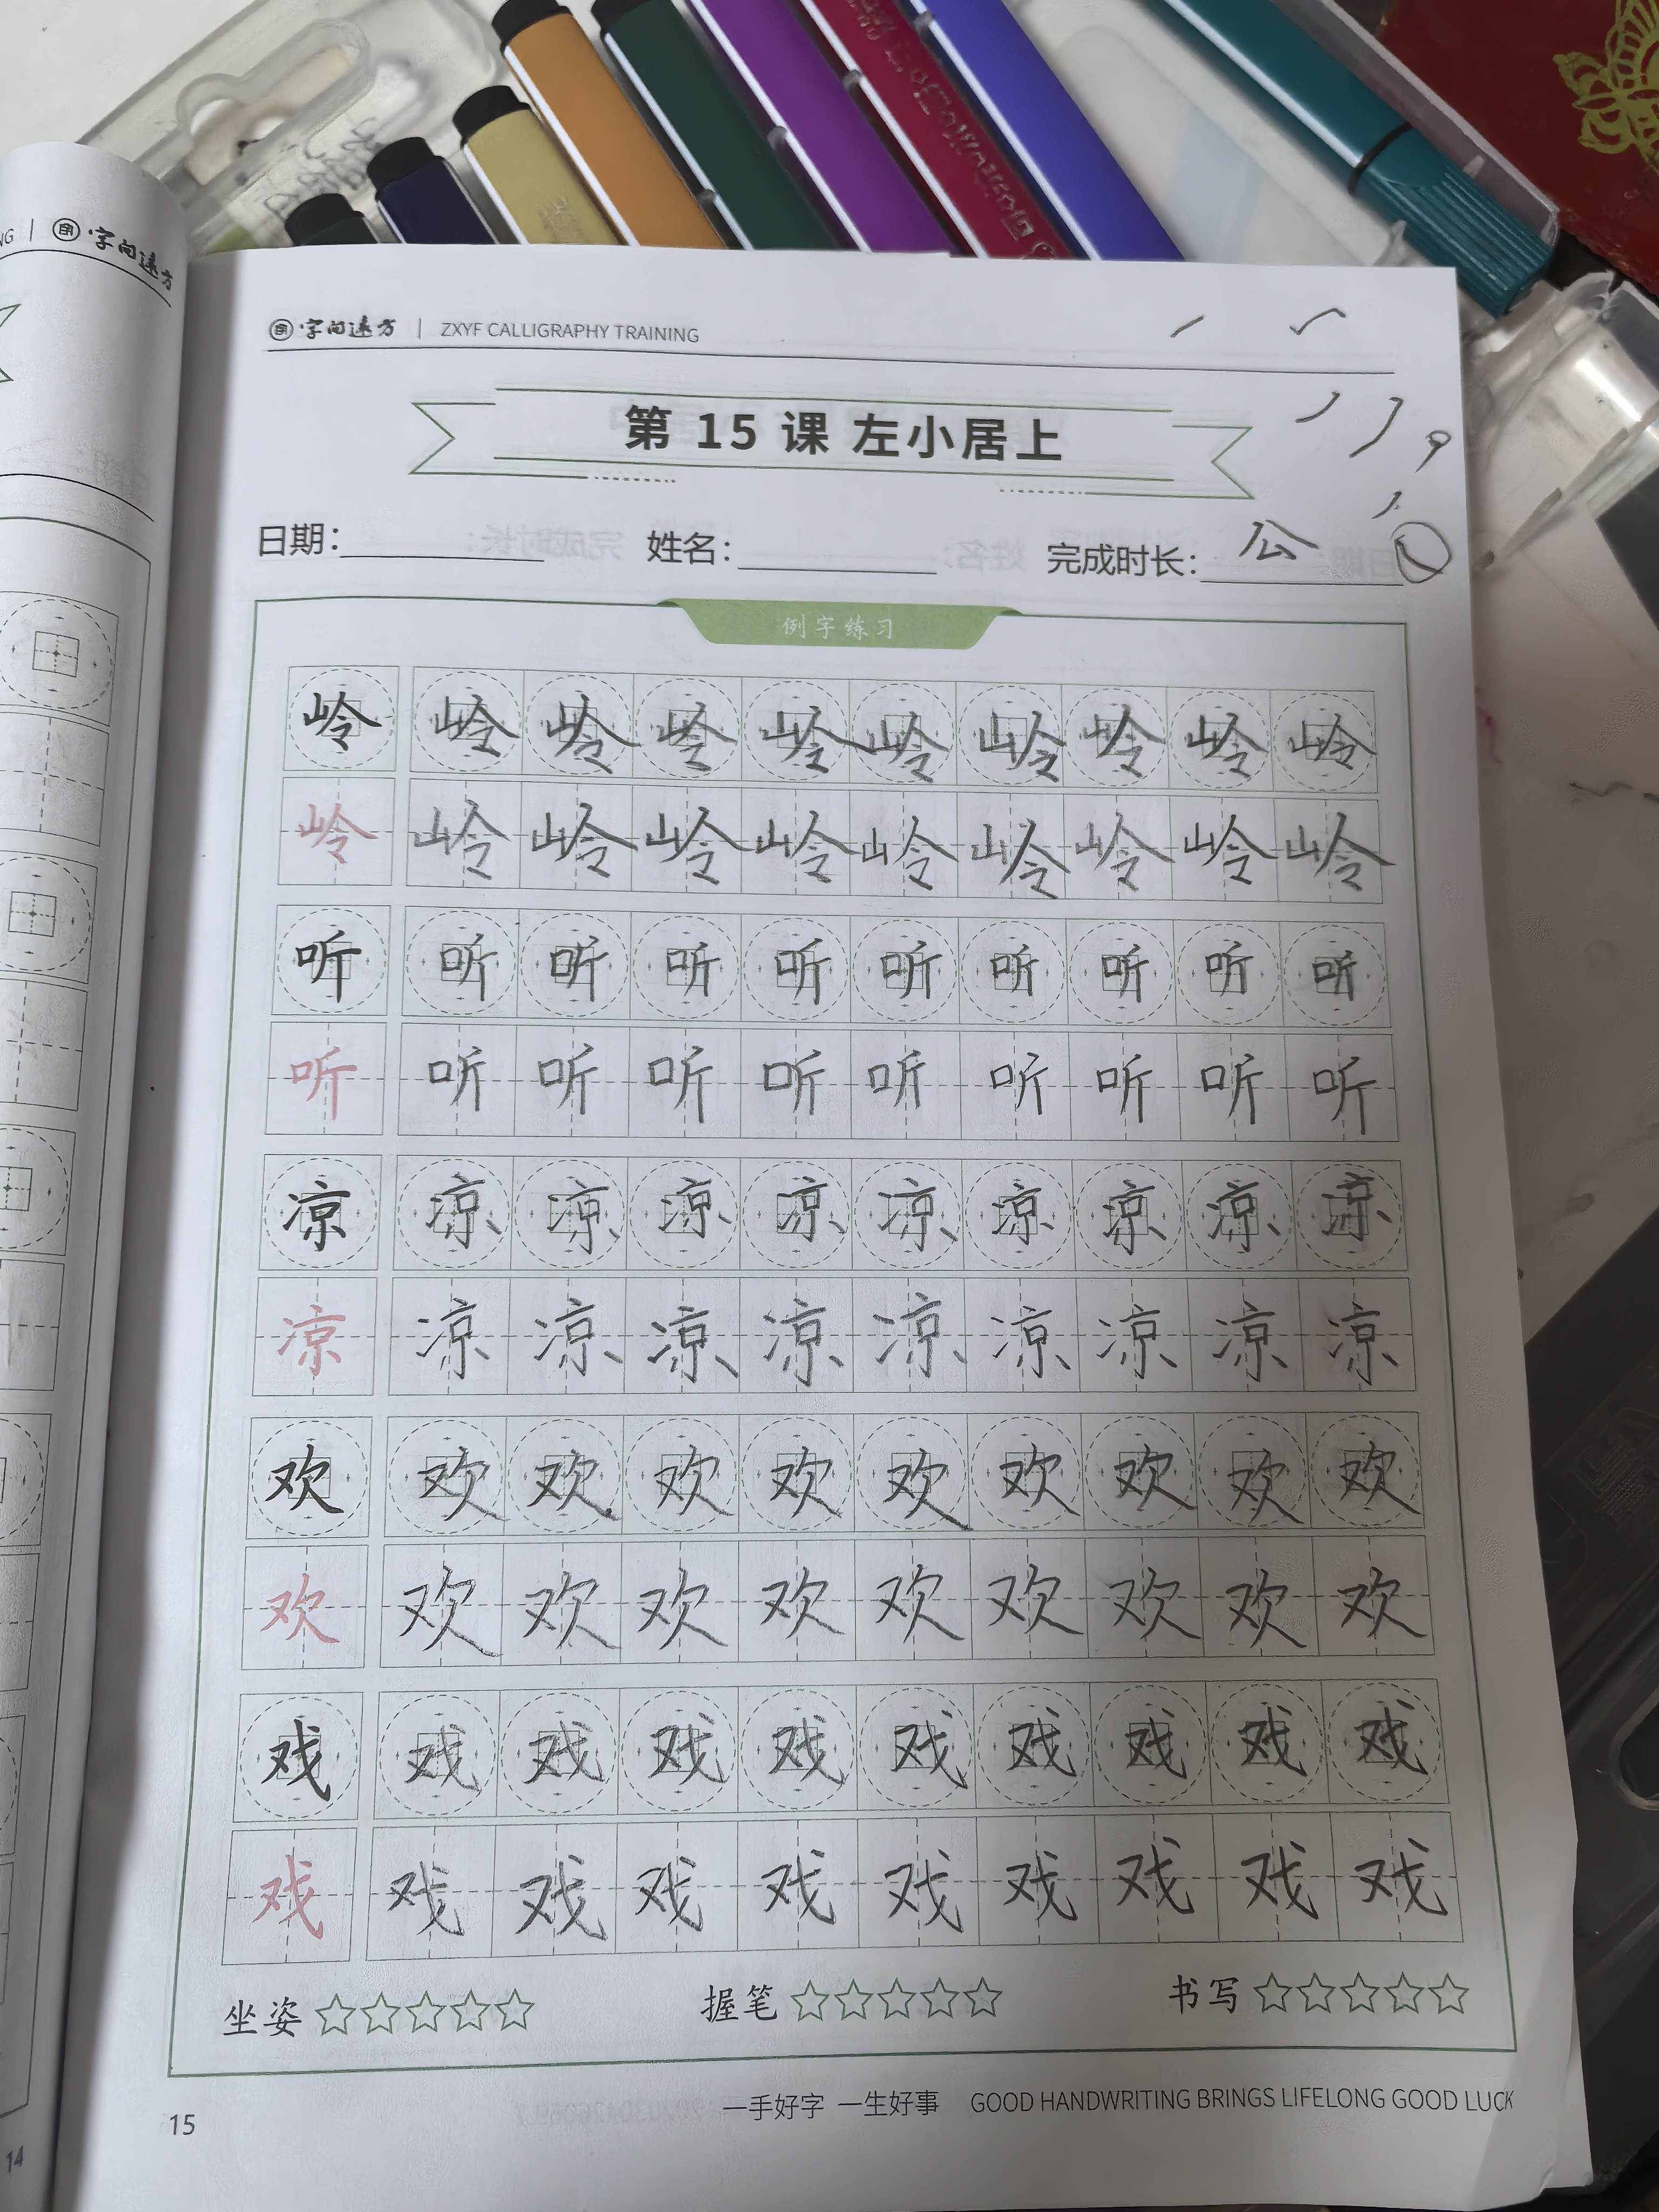 NG | 字 字问远方
字 字问远方 | ZXYF CALLIGRAPHY TRAINING
第 15 课 左小居上
日期: 姓名: 完成时长: 公
例字练习
岭 岭 岭 岭 岭 岭 岭 岭 岭 岭
岭 岭 岭 岭 岭 岭 岭 岭 岭 岭
听 听 听 听 听 听 听 听 听 听
听 听 听 听 听 听 听 听 听 听
凉 凉 凉 凉 凉 凉 凉 凉 凉 凉
凉 凉 凉 凉 凉 凉 凉 凉 凉 凉
欢 欢 欢 欢 欢 欢 欢 欢 欢 欢
欢 欢 欢 欢 欢 欢 欢 欢 欢 欢
戏 戏 戏 戏 戏 戏 戏 戏 戏 戏
戏 戏 戏 戏 戏 戏 戏 戏 戏 戏
坐姿 握笔 书写
一手好字 一生好事 GOOD HANDWRITING BRINGS LIFELONG GOOD LUCK
15
14